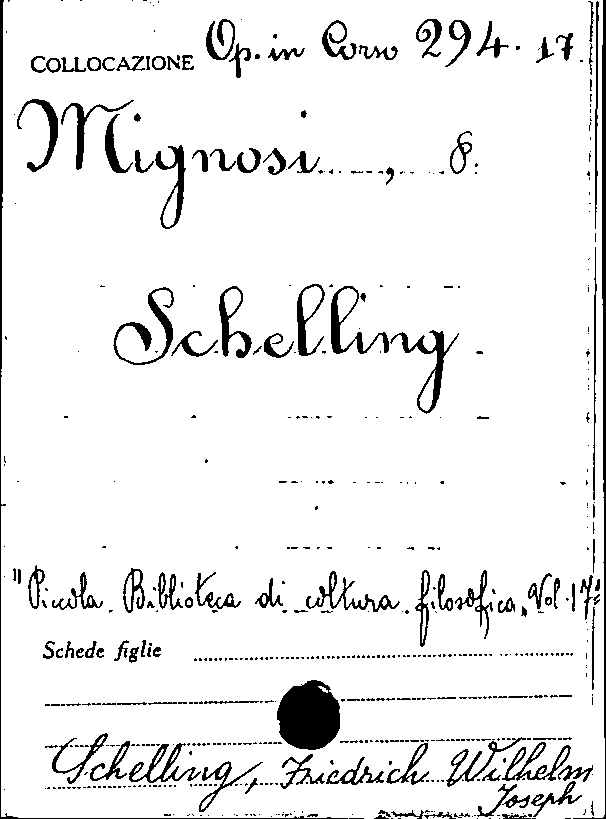 COLLOCAZIONE Op. in Corso 294. 17.
Mignosi, P.
Schelling.
"Piccola Biblioteca di coltura filosofica, Vol. 17º
Schede figlie
Schelling, Friedrich Wilhelm
Joseph